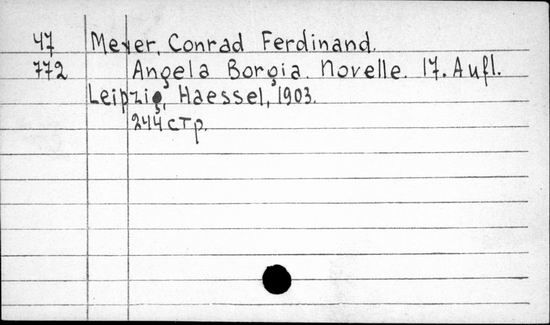 47 Meyer, Conrad Ferdinand.
772 Angela Borgia. Novelle. 17. Aufl.
Leipzig, Haessel, 1903.
244 стр.